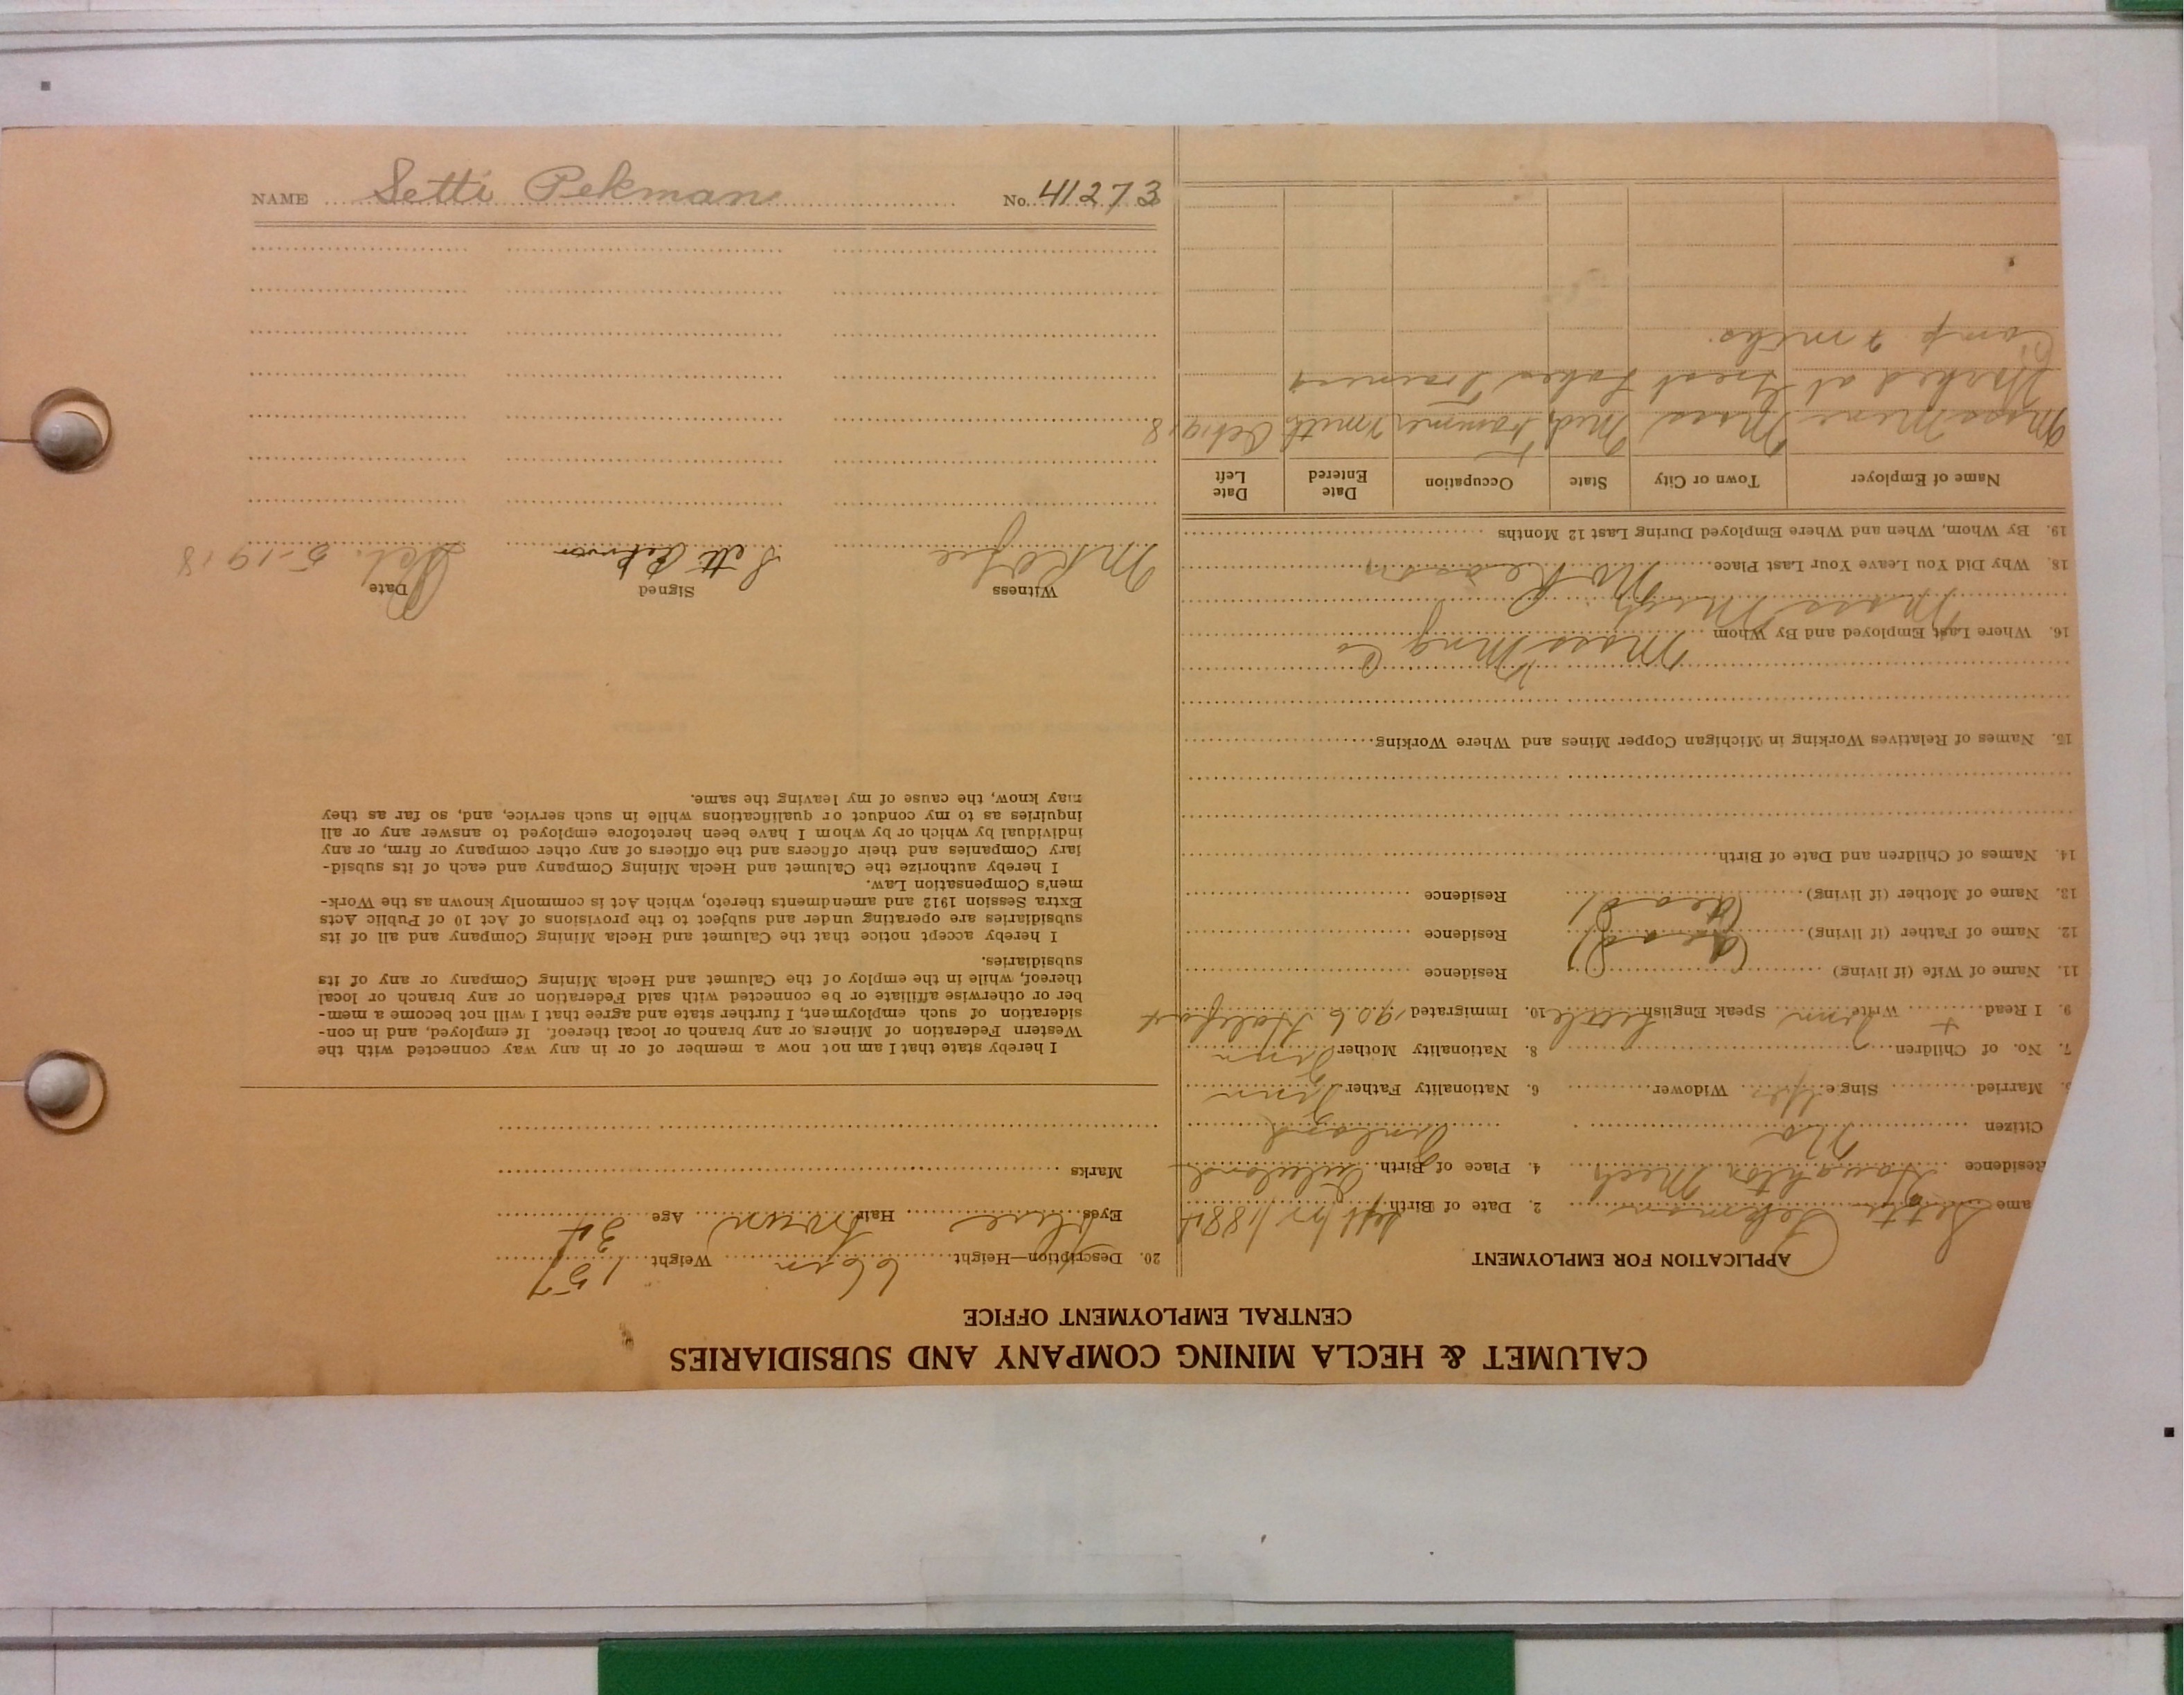 NAME Setti Pekman No. 41273
CALUMET & HECLA MINING COMPANY AND SUBSIDIARIES
CENTRAL EMPLOYMENT OFFICE
APPLICATION FOR EMPLOYMENT
ame Setti Pekman 2. Date of Birth Sept 1884
Residence Houghton Mich 4. Place of Birth
Citizen No Finland
Married Single Yes Widower 6. Nationality Father Finn
7. No. of Children 8. Nationality Mother Finn
9. I Read + Write Finn Speak English Little 10. Immigrated 1906
11. Name of Wife (if living) Residence
12. Name of Father (if living) (Dead) Residence
13. Name of Mother (if living) (Dead) Residence
14. Names of Children and Date of Birth
15. Names of Relatives Working in Michigan Copper Mines and Where Working
Mass Mng Co
16. Where Last Employed and By Whom
Mass Mich
18. Why Did You Leave Your Last Place No Reason
19. By Whom, When and Where Employed During Last 12 Months
Name of Employer Town or City State Occupation Date Entered Date Left
Mass Mine Mass Mich Trammer Oct 1918
Worked at Great Lakes
Camp 7 mths.
20. Description—Height 66 in Weight 157
Eyes Blue Hair Brown Age 34
Marks
I hereby state that I am not now a member of or in any way connected with the
Western Federation of Miners or any branch or local thereof. If employed, and in con-
sideration of such employment, I further state and agree that I will not become a mem-
ber or otherwise affiliate or be connected with said Federation or any branch or local
thereof, while in the employ of the Calumet and Hecla Mining Company or any of its
subsidiaries.
I hereby accept notice that the Calumet and Hecla Mining Company and all of its
subsidiaries are operating under and subject to the provisions of Act 10 of Public Acts
Extra Session 1912 and amendments thereto, which Act is commonly known as the Work-
men's Compensation Law.
I hereby authorize the Calumet and Hecla Mining Company and each of its subsid-
iary Companies and their officers and the officers of any other company or firm, or any
individual by which or by whom I have been heretofore employed to answer any or all
inquiries as to my conduct or qualifications while in such service, and, so far as they
may know, the cause of my leaving the same.
Witness Signed Date
Setti Pekman Oct. 5-1918